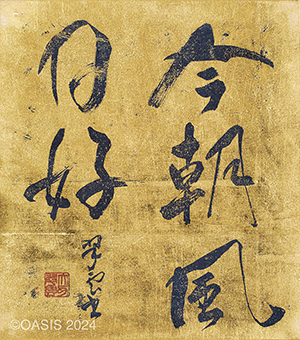 今朝風
日好
©OASIS 2024